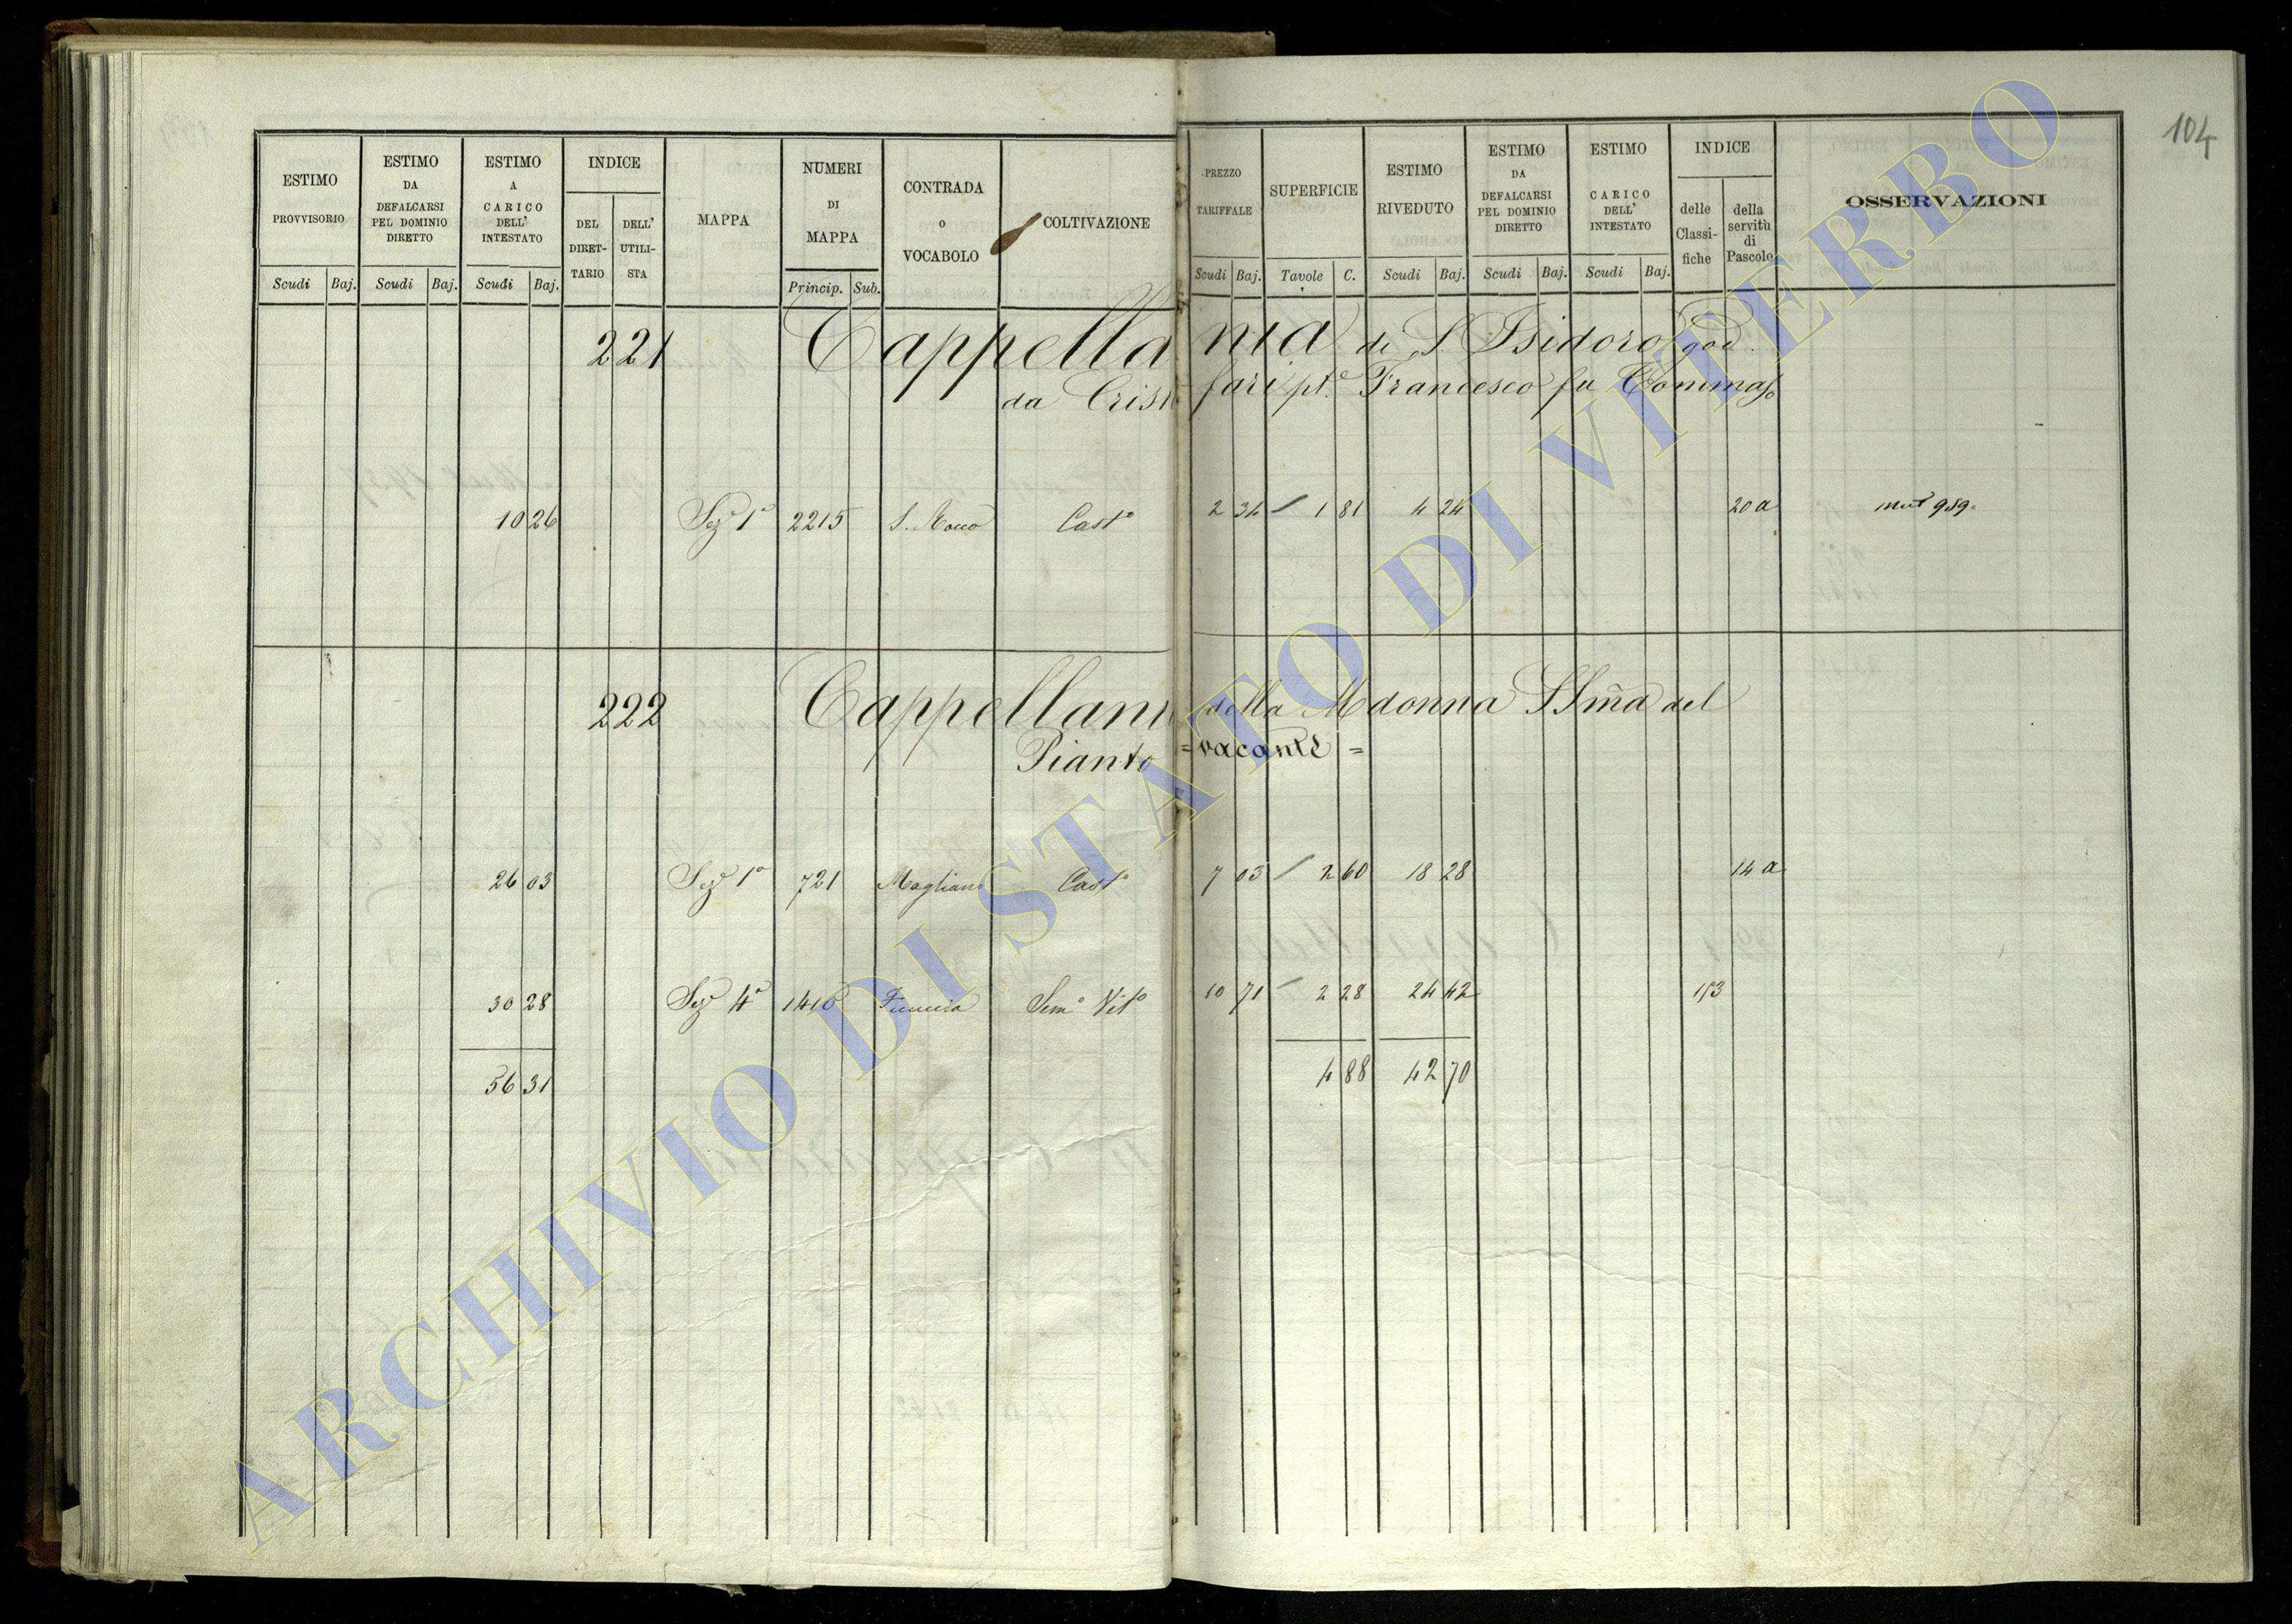 104
ESTIMO PROVVISORIO Scudi Baj.
ESTIMO DA DEFALCARSI PEL DOMINIO DIRETTO Scudi Baj.
ESTIMO A CARICO DELL' INTESTATO Scudi Baj.
INDICE DEL DIRET-TARIO DELL' UTILI-STA
MAPPA
NUMERI DI MAPPA Princip. Sub.
CONTRADA o VOCABOLO
COLTIVAZIONE
PREZZO TARIFFALE Scudi Baj.
SUPERFICIE Tavole C.
ESTIMO RIVEDUTO Scudi Baj.
ESTIMO DA DEFALCARSI PEL DOMINIO DIRETTO Scudi Baj.
ESTIMO CARICO DELL' INTESTATO Scudi Baj.
INDICE delle Classi-fiche della servitù di Pascolo
OSSERVAZIONI
221 Cappellania di S. Isidoro god.
da Cristofari pt.e Francesco fu Tommaso
10 26 Sez.e 1a 2215 S. Rocco Cast.o 2 34 1 81 4 24 20 a mut 959.
222 Cappellani della Madonna SSma del
Pianto = vacante =
26 03 Sez.e 1a 721 Magliano Cast.o 7 03 2 60 18 28 14 a
30 28 Sez.e 4a 1416 Sem.o Vit.o 10 71 2 28 24 42 153
56 31 4 88 42 70
ARCHIVIO DI STATO DI VITERBO